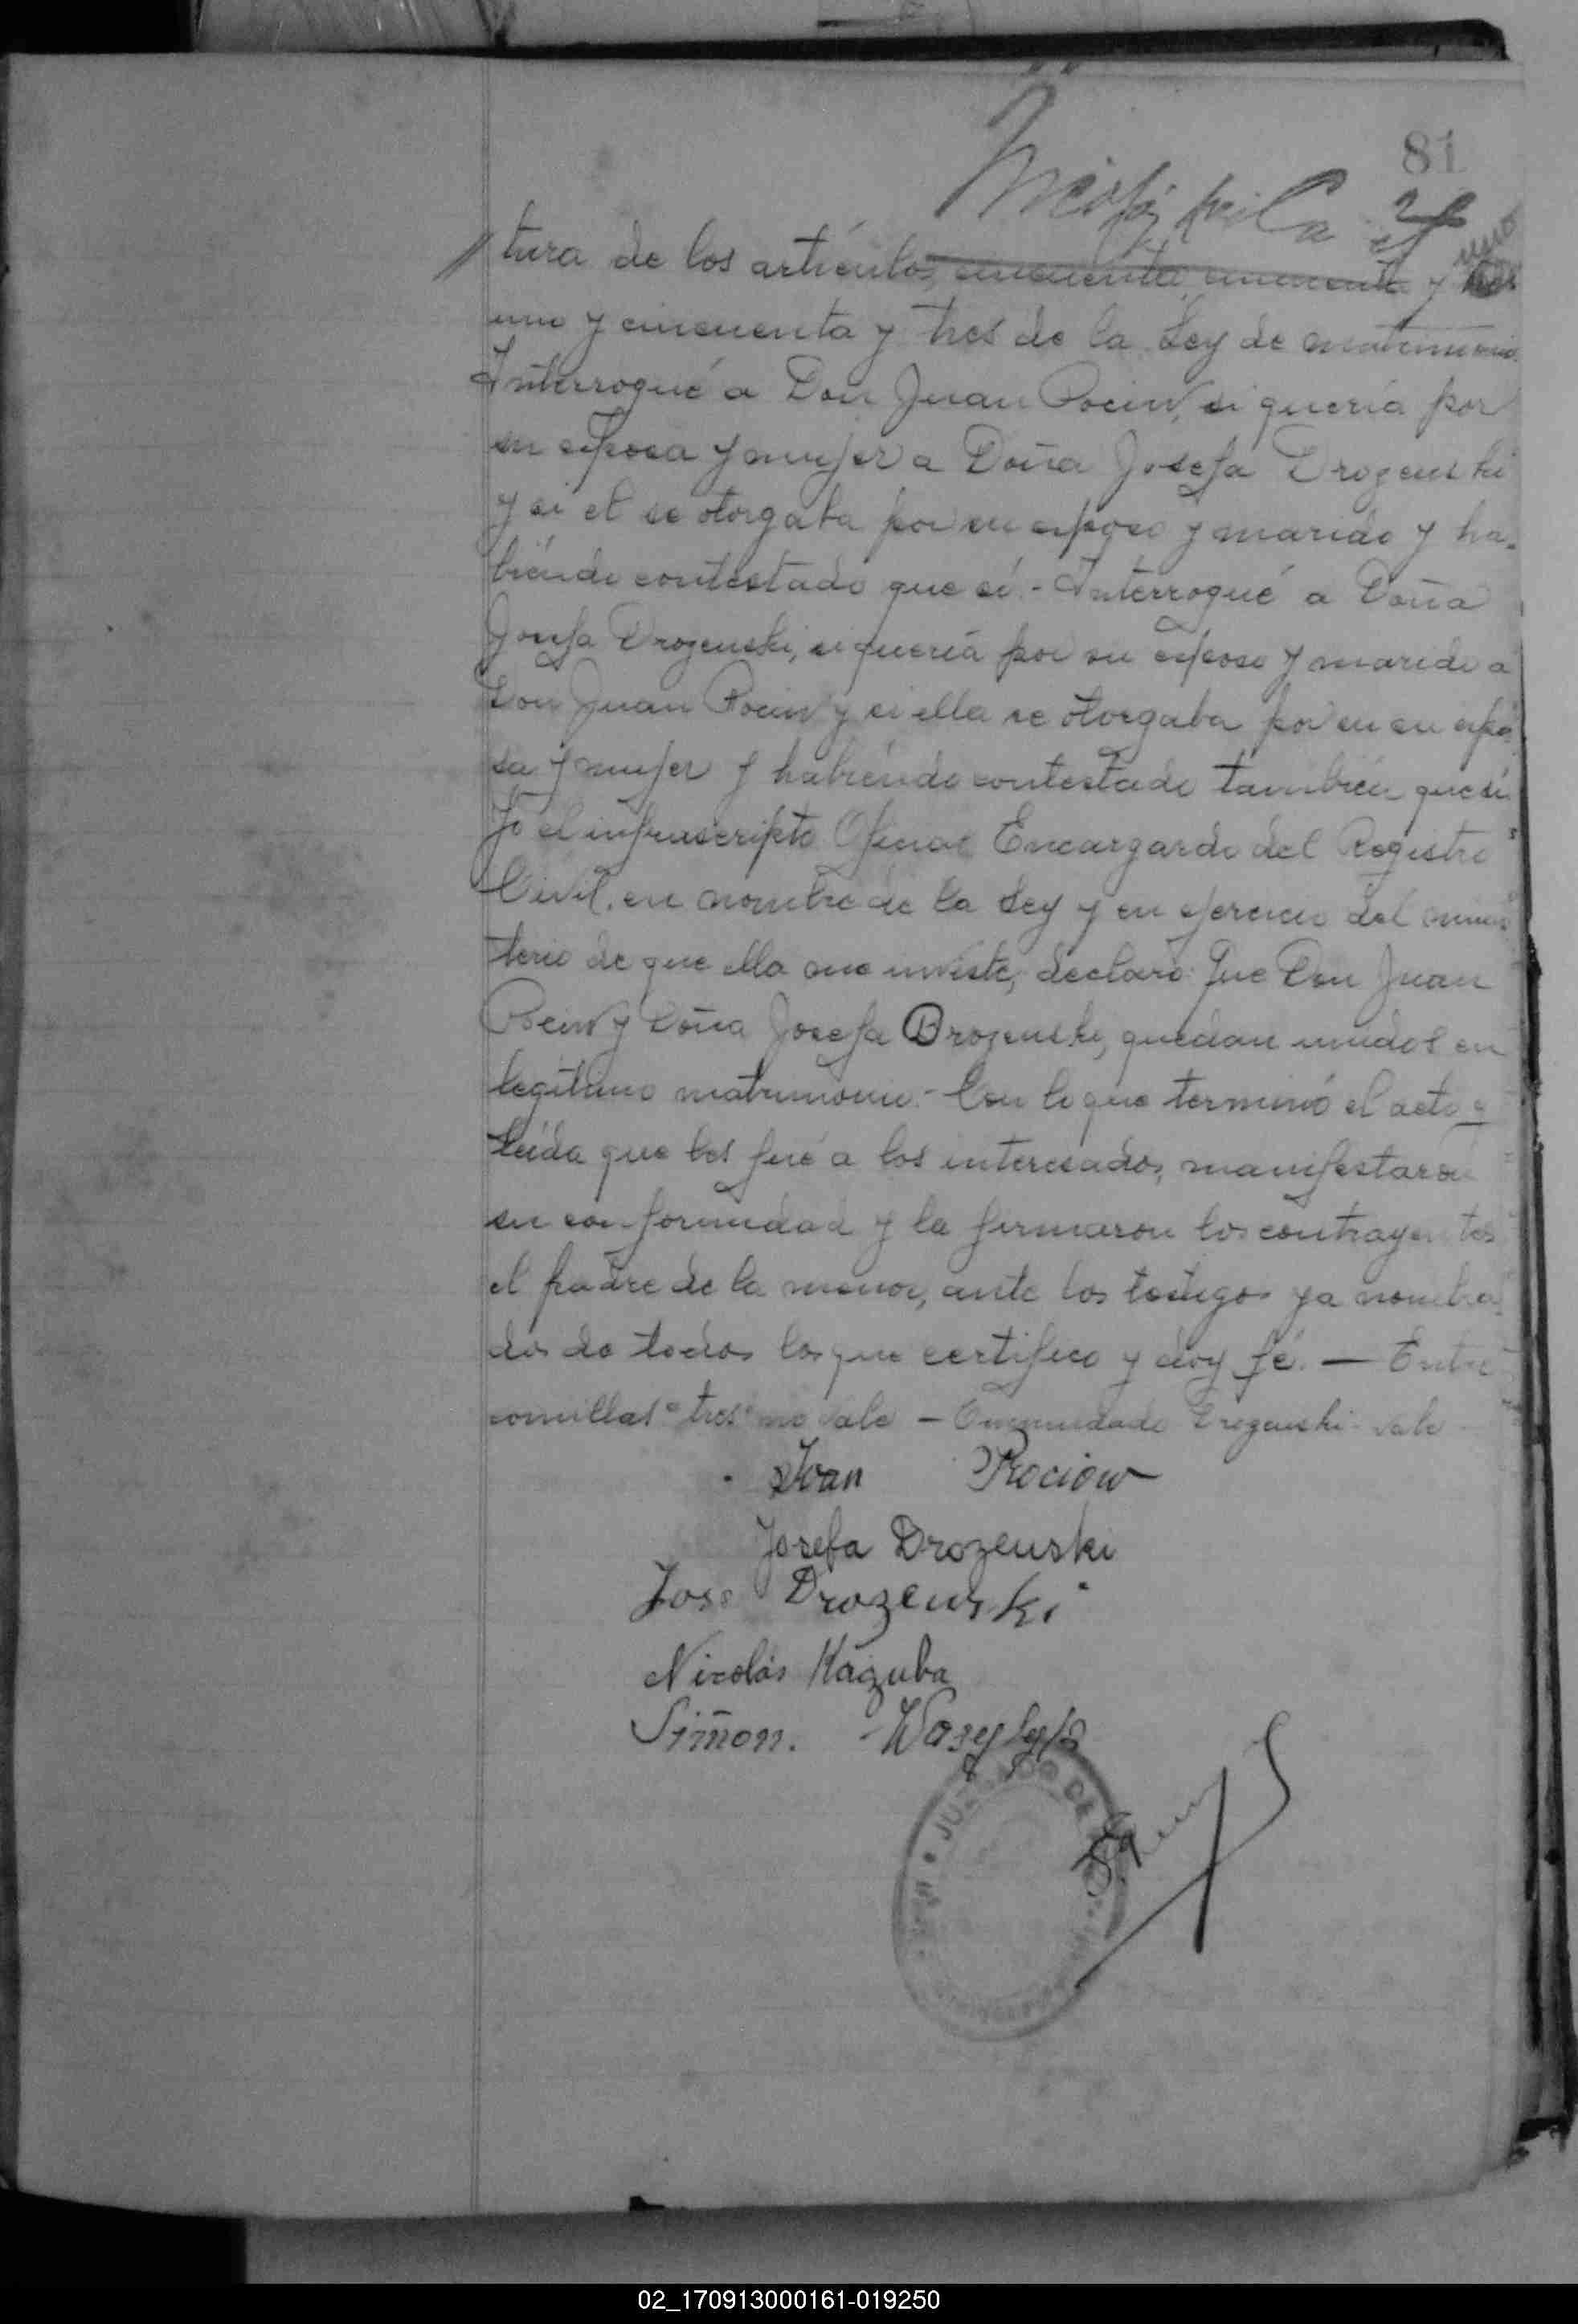 81
// tura de los artículos, cincuenta, cincuenta y tres
uno
uno y cincuenta y tres de la Ley de matrimonio
Interrogué a Don Juan Pociw, si quería por
su esposa y mujer a Doña Josefa Drozenski
y si el se otorgaba por su esposo y marido y ha-
biéndo contestado que sí.- Interrogué a Doña
Josefa Drozenski, si quería por su esposo y marido a
Don Juan Pociw y si ella se otorgaba por su su espo
sa y mujer y habiéndo contestado también que sí
Yo el infrascripto Oficial Encargardo del Registro
Civil, en nombre de la Ley y en ejercicio del minis
terio de que ella me inviste, declaro: Que Don Juan
Pociw y Doña Josefa Drozenski, quedan unidos en
legítimo matrimonio.- Con lo que terminó el acto y
leída que les fué a los interesados, manifestaron
su conformidad y la firmaron los contrayentes
el padre de la menor, ante los testigos ya nombra
dos de todos los que certifico y doy fé. — Entre
comillas "tres" no vale — Enmendado Drozenski vale
Ivan Prociow
Josefa Drozenski
Jose Drozenski
Nicolás Kaguba
Simon. Wasylyk
JUZGADO DE